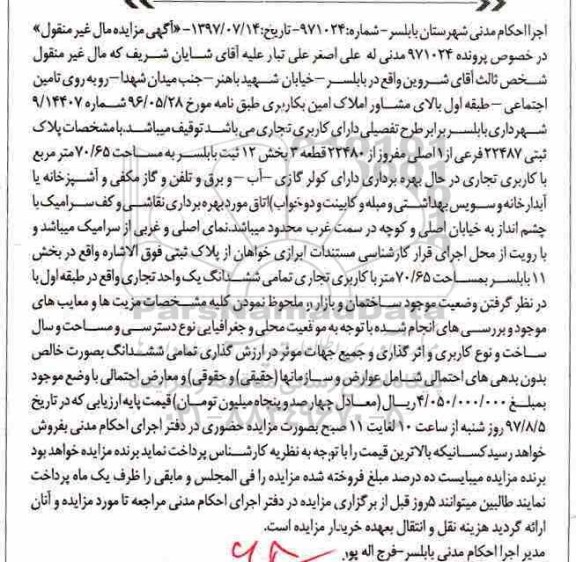 اجرا احکام مدنی شهرستان بابلسر-شماره:۹۷۱۰۲۴-تاریخ:۱۳۹۷/۰۷/۱۴-«آگهی مزایده مال غیر منقول»
در خصوص پرونده ۹۷۱۰۲۴ مدنی له علی اصغر علی تبار علیه آقای شایان شریف که مال غیر منقول
شخص ثالث آقای شروین واقع در بابلسر-خیابان شهید باهنر-جنب میدان شهدا-روبه روی تامین
اجتماعی -طبقه اول بالای مشاور املاک امین بکاربری طبق نامه مورخ ۹۶/۰۵/۲۸ شماره ۹/۱۴۴۰۷
شهرداری بابلسر برابر طرح تفصیلی دارای کاربری تجاری می باشد توقیف میباشد.با مشخصات پلاک
ثبتی ۲۲۴۸۷ فرعی از ۱ اصلی مفروز از ۲۲۴۸۰ قطعه ۳ بخش ۱۲ ثبت بابلسر به مساحت ۷۰/۶۵ متر مربع
با کاربری تجاری در حال بهره برداری دارای کولر گازی -آب -و برق و تلفن و گاز مکفی و آشپزخانه یا
آبدارخانه و سرویس بهداشتی و مبله و کابینت و دوخواب)اتاق مورد بهره برداری نقاشی و کف سرامیک با
چشم انداز به خیابان اصلی و کوچه در سمت غرب محدود میباشد.نمای اصلی و غربی از سرامیک میباشد و
با رویت از محل اجرای قرار کارشناسی مستندات ابرازی خواهان از پلاک ثبتی فوق الاشاره واقع در بخش
۱۱ بابلسر بمساحت ۷۰/۶۵ متر با کاربری تجاری تمامی ششدانگ یک واحد تجاری واقع در طبقه اول با
در نظر گرفتن وضعیت موجود ساختمان و بازار و ملحوظ نمودن کلیه مشخصات مزیت ها و معایب های
موجود و بررسی های انجام شده با توجه به موقعیت محلی و جغرافیایی نوع دسترسی و مساحت و سال
ساخت و نوع کاربری و اثر گذاری و جمیع جهات موثر در ارزش گذاری تمامی ششدانگ بصورت خالص
بدون بدهی های احتمالی شامل عوارض و سازمانها (حقیقی) و حقوقی و معارض احتمالی با وضع موجود
بمبلغ ۴/۰۵۰/۰۰۰/۰۰۰ریال(معادل چهارصد و پنجاه میلیون تومان) قیمت پایه ارزیابی که در تاریخ
۹۷/۸/۵ روز شنبه از ساعت ۱۰ لغایت ۱۱ صبح بصورت مزایده حضوری در دفتر اجرای احکام مدنی بفروش
خواهد رسید کسانیکه بالاترین قیمت را با توجه به نظریه کارشناس پرداخت نماید برنده مزایده خواهد بود
برنده مزایده میبایست ده درصد مبلغ فروخته شده مزایده را فی المجلس و مابقی را ظرف یک ماه پرداخت
نمایند طالبین میتوانند ۵روز قبل از برگزاری مزایده در دفتر اجرای احکام مدنی مراجعه تا مورد مزایده و آنان
ارائه گردید هزینه نقل و انتقال بعهده خریدار مزایده است.
مدیر اجرا احکام مدنی بابلسر-فرج اله پور